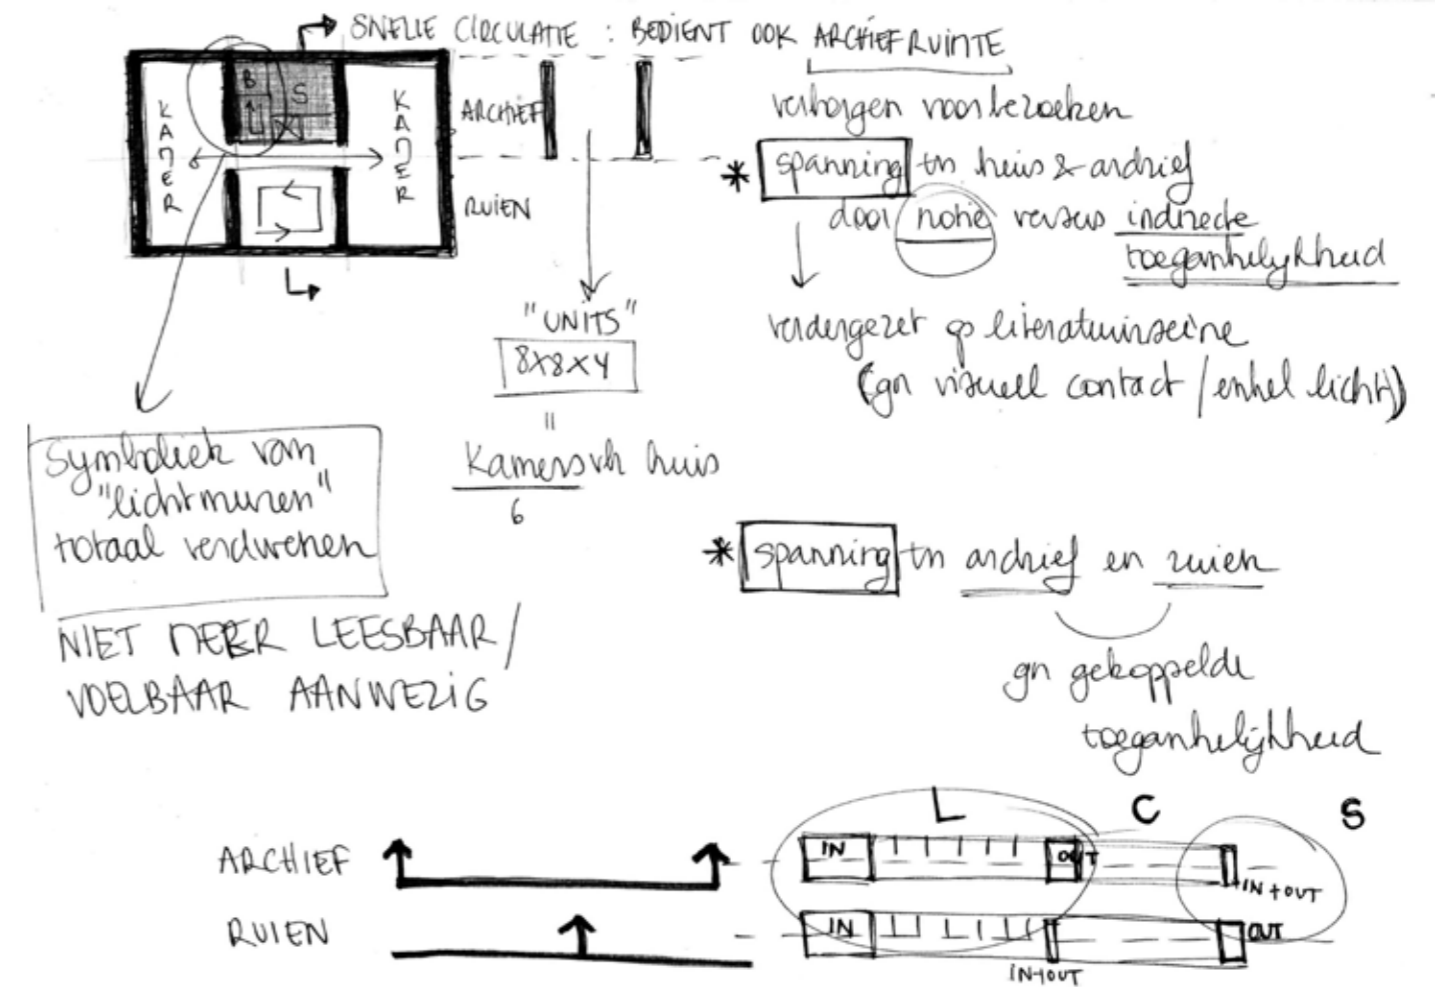 SNELLE CIRCULATIE : BEDIENT OOK ARCHIEFRUIMTE
verborgen voor bezoeken
* spanning tn huis & archief
door notie versus indirecte
toegankelijkheid
verdergezet op literatuurseine
(gn visueel contact / enkel licht)
KAMER
B
S
KAMER
L
ARCHIEF
RUIEN
"UNITS"
8x8x4
=
Kamers vh huis
6
Symboliek van
"lichtmuren"
totaal verdwenen
NIET MEER LEESBAAR /
VOELBAAR AANWEZIG
* spanning tn archief en ruien
gn gekoppelde
toegankelijkheid
ARCHIEF
RUIEN
L C S
IN OUT IN+OUT
IN IN+OUT OUT